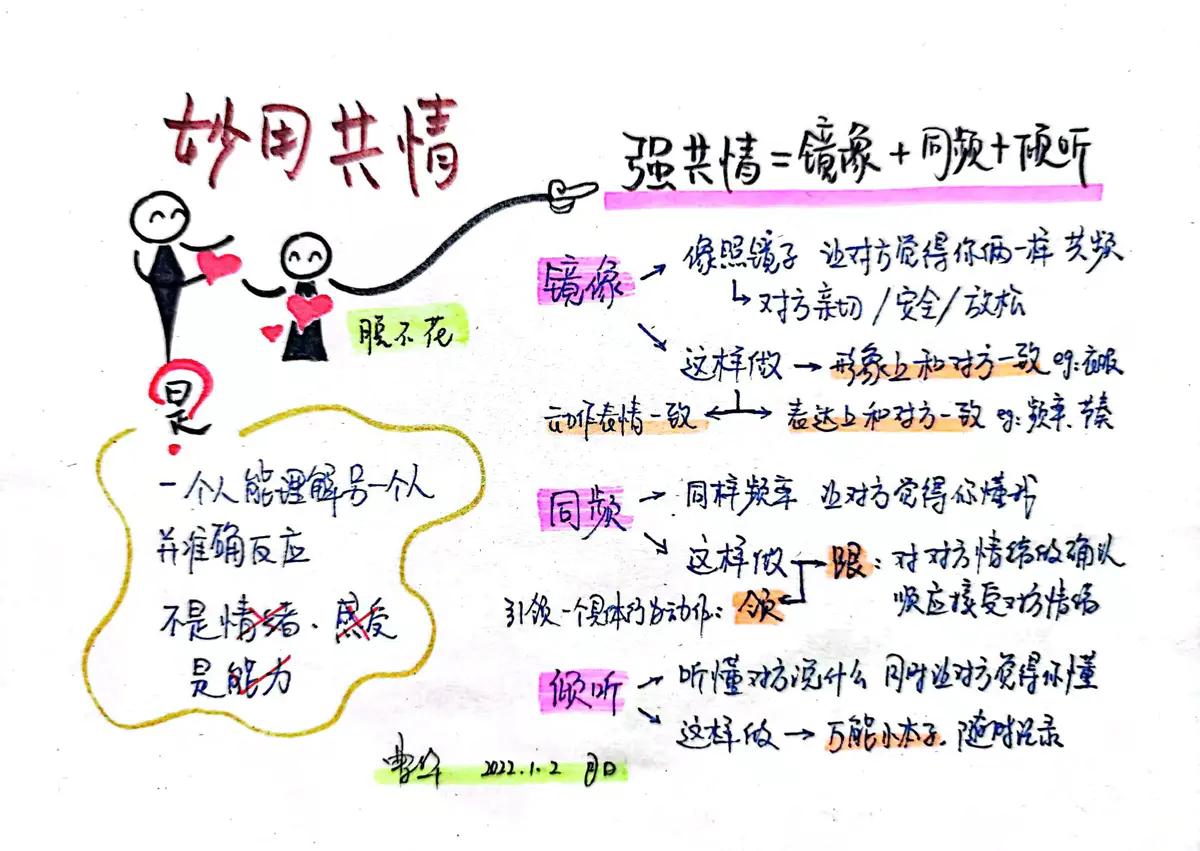 妙用共情
强共情=镜像+同频+倾听
脱不花
是
一个人能理解另一个人
并准确反应
不是情绪、感受
是能力
镜像
像照镜子 让对方觉得你俩一样 共频
对方亲切/安全/放松
这样做 → 形象上和对方一致 eg:衣服
动作表情一致
表达上和对方一致 eg:频率、节奏
同频
同样频率 让对方觉得你懂我
这样做
跟:对对方情绪做确认
顺应接受对方情绪
引领一个具体行为动作:领
倾听
听懂对方说什么 同时让对方觉得你懂
这样做 → 万能小本子、随时记录
2022.1.2